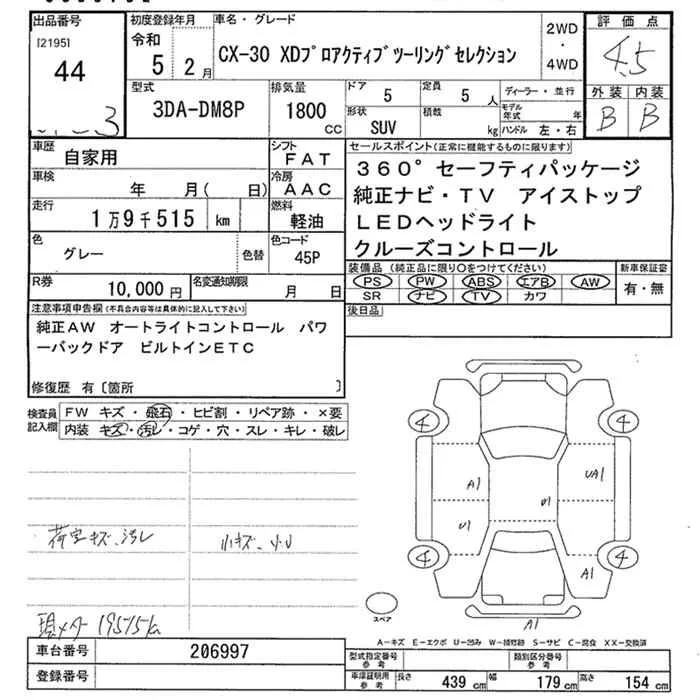 出品番号 初度登録年月 車名・グレード 評価点
[2195] 令和
44 5 2月 CX-30 XDプロアクティブツーリングセレクション 2WD ・ 4WD 4.5
型式 排気量 ドア 定員 ディーラー・並行 外装 内装
3DA-DM8P 1800 CC 5 5 人 モデル年式 年 B B
形状 積載
SUV kg ハンドル 左・右
車歴 自家用 シフト FAT セールスポイント(正常に機能するものに限ります)
車検 年 月( 日) 冷房 AAC 360°セーフティパッケージ
走行 1万9千515 km 燃料 軽油 純正ナビ・TV アイストップ
LEDヘッドライト
色 グレー 色替 色コード 45P クルーズコントロール
R券 10,000円 名変通知期限 月 日 装備品(純正品に限り○をつけてください) 新車保証書
PS PW ABS エアB AW 有・無
SR ナビ TV カワ
注意事項申告欄(不具合内容等は具体的に記入して下さい) 後日品
純正AW オートライトコントロール パワ
ーバックドア ビルトインETC
修復歴 有〔箇所 〕
検査員記入欄 FW キズ・飛石・ヒビ割・リペア跡・×要
内装 キズ・汚レ・コゲ・穴・スレ・キレ・破レ
4 4
A1 UA1
U1 U1
荷室キズ、汚レ 小キズ、小U
4 4
A1
スペア A1
現メーター 19515km
A-キズ E-エクボ U-凹み W-補修跡 S-サビ C-腐食 XX-交換済
車台番号 206997 型式指定番号 参考 類別区分番号 参考
登録番号 車庫証明用 参考 長さ 439 cm 幅 179 cm 高さ 154 cm